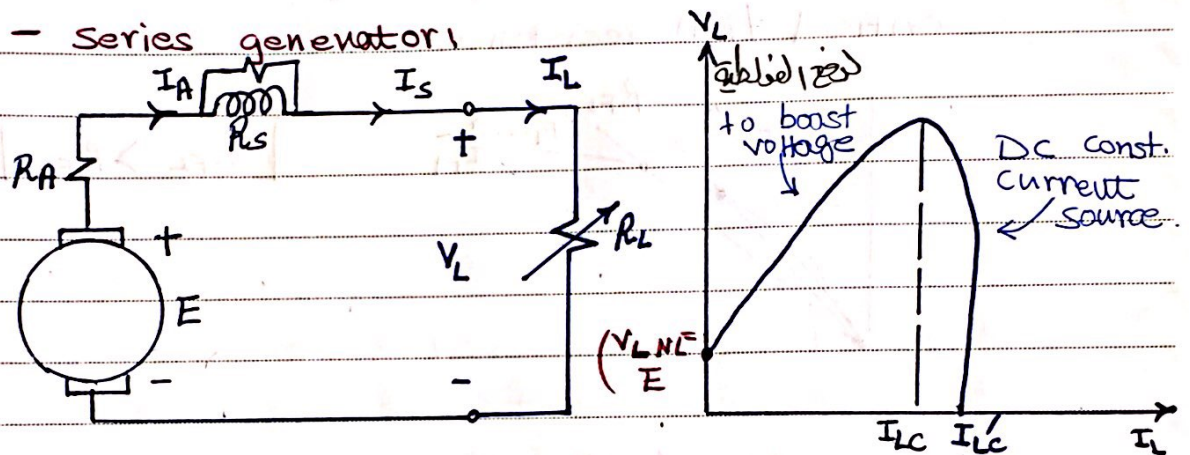 - series generator,
I_A
I_S
I_L
R_S
+
R_A
+
E
-
V_L
R_L
-
V_L
to boast
voltage
DC const.
current
source.
(V_L NL =
E
I_LC
I_LC'
I_L